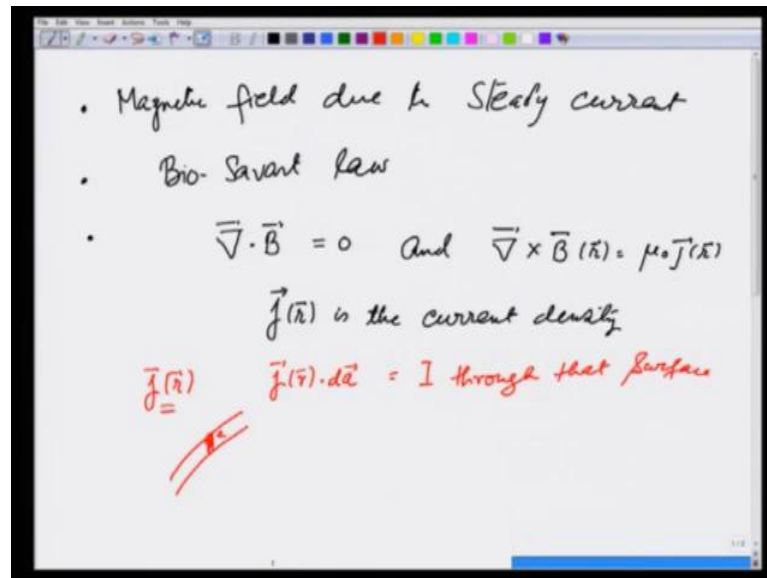 File Edit View Insert Actions Tools Help
B I
• Magnetic field due to Steady current
• Bio-Savart law
• ∇⃗ · B⃗ = 0 and ∇⃗ × B⃗ (r⃗) = μ₀ J⃗(r⃗)
j⃗(r⃗) is the current density
j⃗(r⃗) j⃗(r⃗) · da⃗ = I through that Surface
1/2